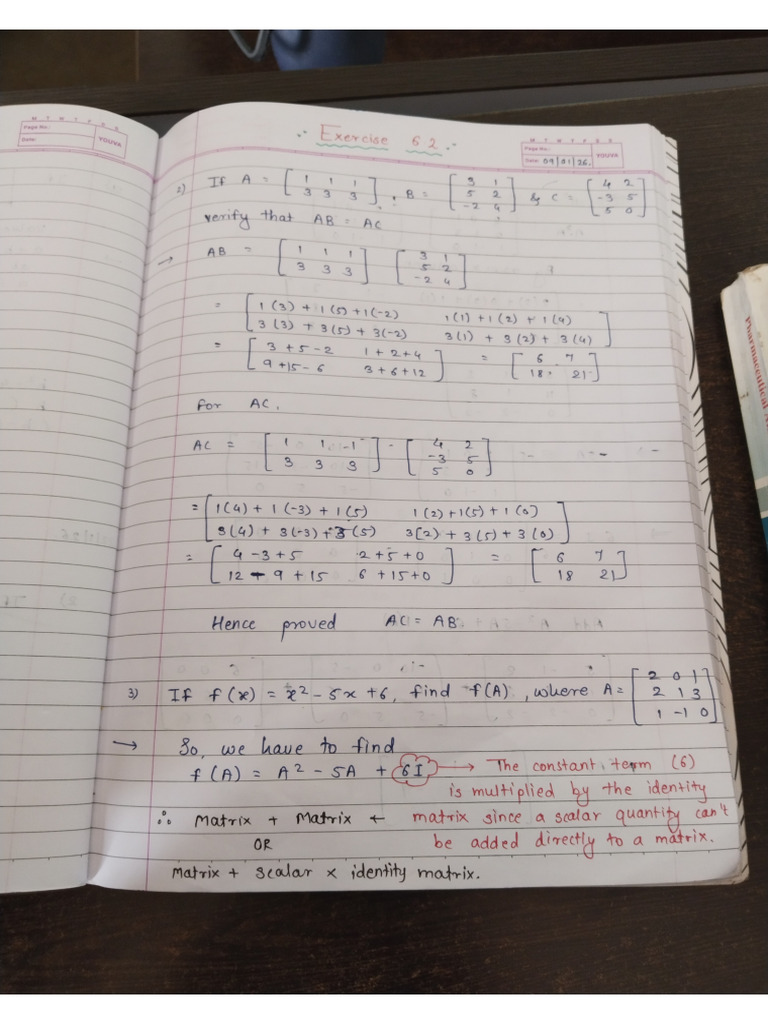 M T W T F S S
Page No.:
Date:
YOUVA
∴ Exercise 6 2 ∴
M T W T F S S
Page No.:
Date: 09 01 26.
YOUVA
2) If A = [ 1 1 1 / 3 3 3 ], B = [ 3 1 / 5 2 / -2 4 ] & C = [ 4 2 / -3 5 / 5 0 ]
verify that AB = AC
→ AB = [ 1 1 1 / 3 3 3 ] [ 3 1 / 5 2 / -2 4 ]
= [ 1(3) + 1(5) + 1(-2) 1(1) + 1(2) + 1(4)
3(3) + 3(5) + 3(-2) 3(1) + 3(2) + 3(4) ]
= [ 3 + 5 - 2 1 + 2 + 4 / 9 + 15 - 6 3 + 6 + 12 ] = [ 6 7 / 18 21 ]
For AC.
AC = [ 1 1 1 / 3 3 3 ] [ 4 2 / -3 5 / 5 0 ]
= [ 1(4) + 1(-3) + 1(5) 1(2) + 1(5) + 1(0)
3(4) + 3(-3) + 3(5) 3[2) + 3(5) + 3(0) ]
= [ 4 - 3 + 5 2 + 5 + 0 / 12 - 9 + 15 6 + 15 + 0 ] = [ 6 7 / 18 21 ]
Hence proved AC = AB
3) If f(x) = x² - 5x + 6, find f(A), where A = [ 2 0 1 / 2 1 3 / 1 -1 0 ]
→ So, we have to find
f(A) = A² - 5A + 6I → The constant term (6)
is multiplied by the identity
∴ Matrix + Matrix ← matrix since a scalar quantity can't
OR be added directly to a matrix.
Matrix + scalar × identity matrix.
Pharmaceutical